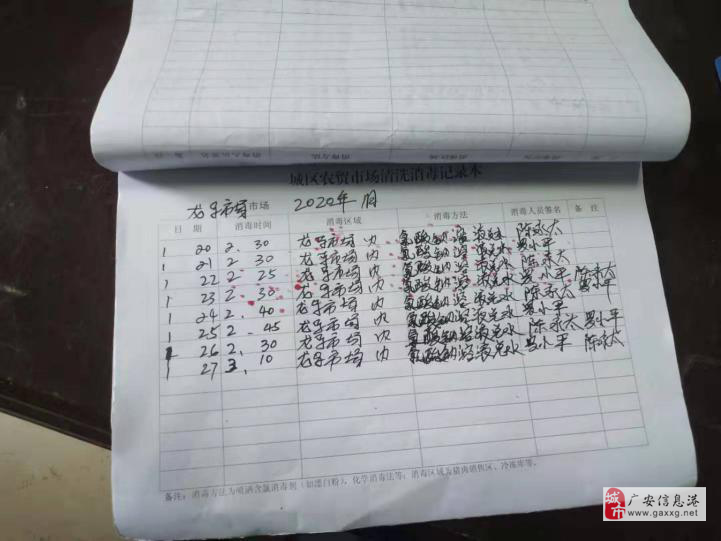 城区农贸市场清洗消毒记录本
龙孚市场市场 2020年1月
日 期 消毒时间 消毒区域 消毒方法 消毒人员签名 备 注
1 20 2.30 龙孚市场内 氯酸钠溶液兑水 陈永太
1 21 2.30 龙孚市场内 氯酸钠溶液兑水 小平
1 22 2.25 龙孚市场内 氯酸钠溶液兑水 陈永太
1 23 2.30 龙孚市场内 氯酸钠溶液兑水 小平 陈永太
1 24 2.40 龙孚市场内 氯酸钠溶液兑水 陈永太 小平
1 25 2.45 龙孚市场内 氯酸钠溶液兑水 小平
1 26 2.30 龙孚市场内 氯酸钠溶液兑水 陈永太 小平
1 27 3.10 龙孚市场内 氯酸钠溶液兑水 小平 陈永太
备注：消毒方法为喷洒含氯消毒剂（如漂白粉），化学消毒法等；消毒区域为猪肉销售区、冷冻库等。
城市 广安信息港
www.gaxxg.net